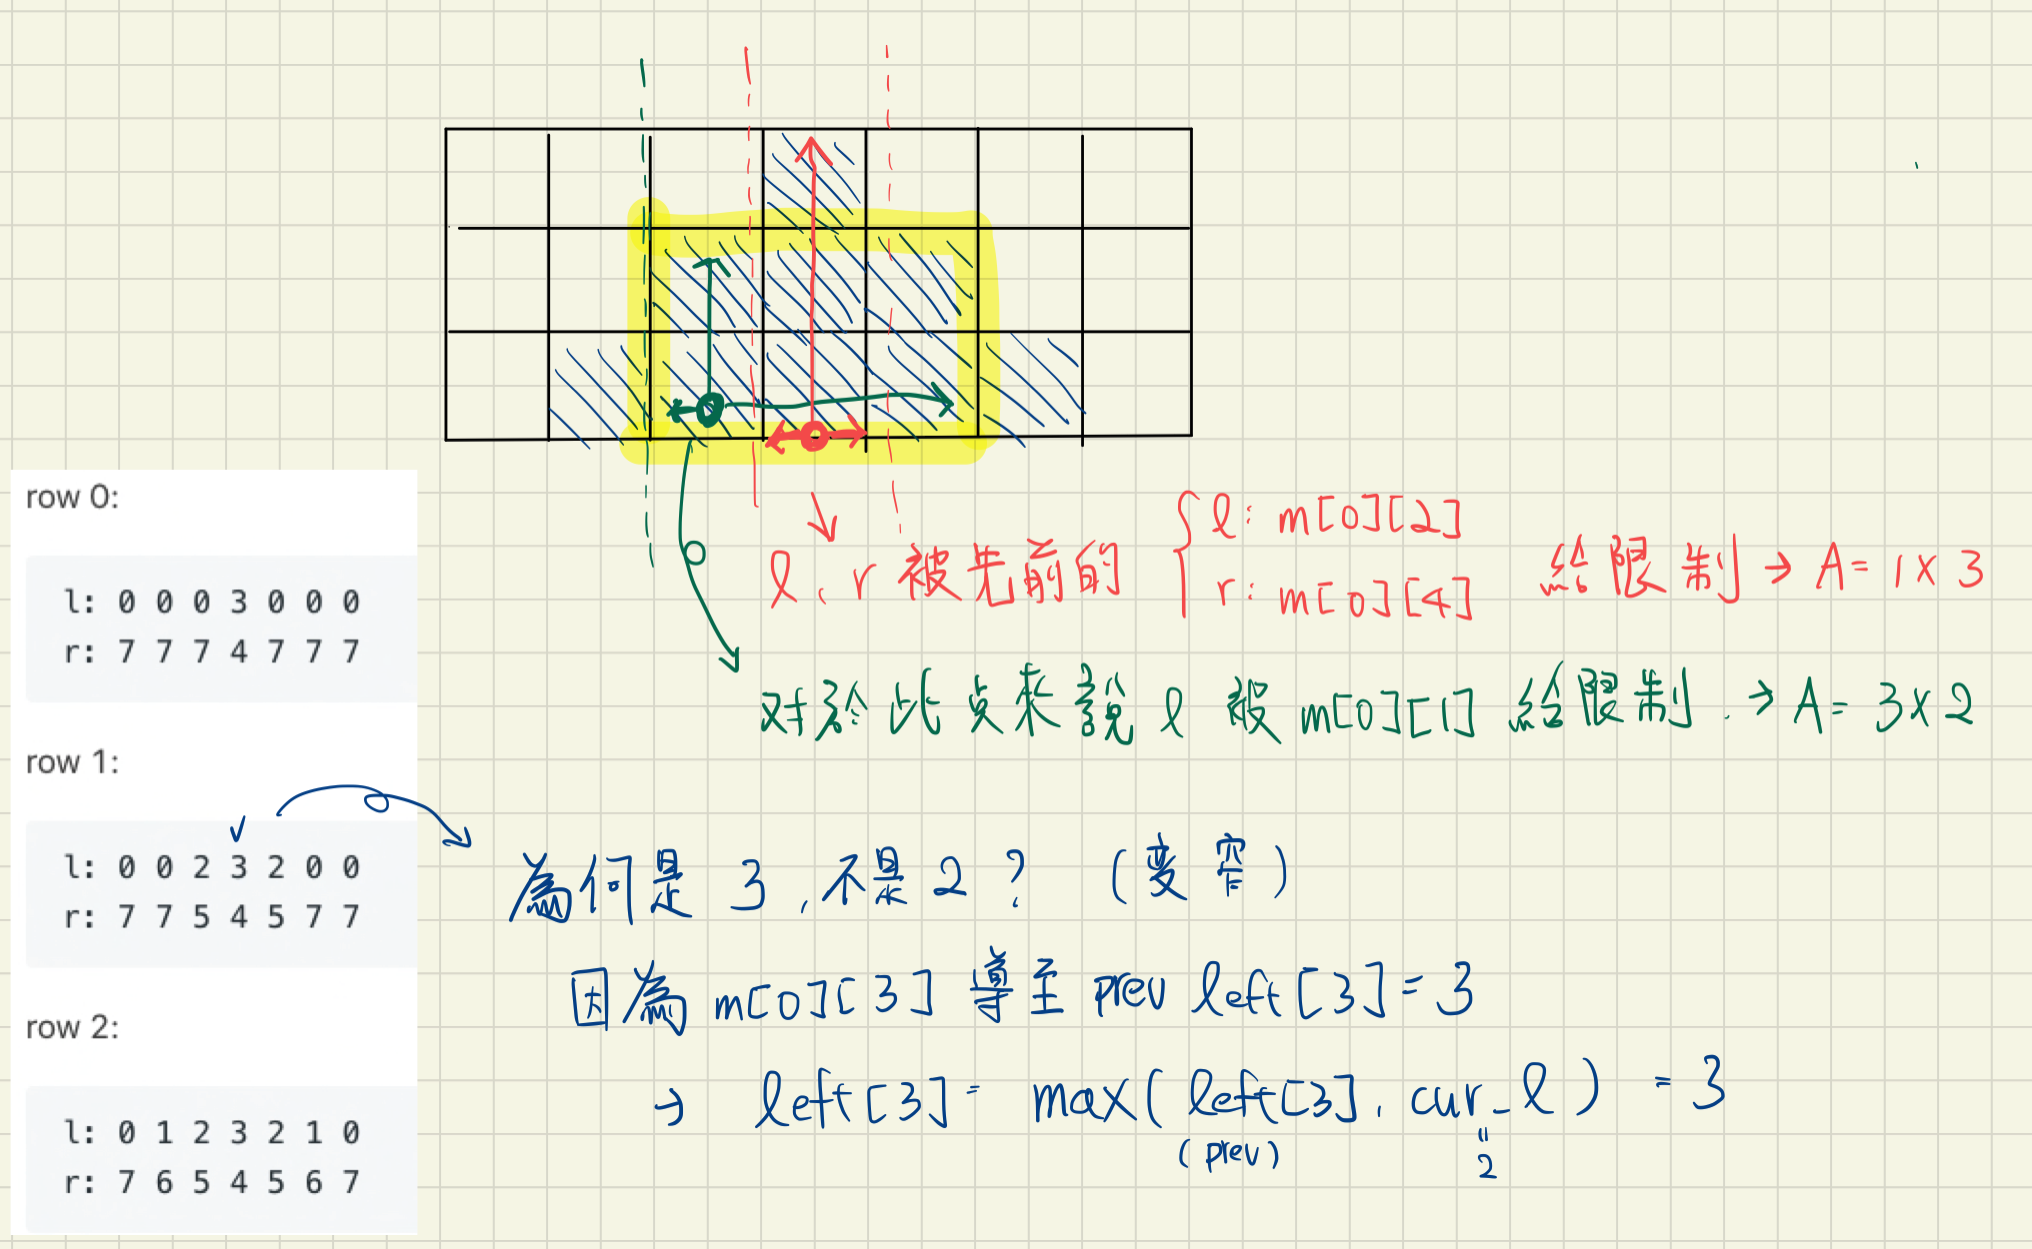 row 0:
l: 0 0 0 3 0 0 0
r: 7 7 7 4 7 7 7
row 1:
l: 0 0 2 3 2 0 0
r: 7 7 5 4 5 7 7
row 2:
l: 0 1 2 3 2 1 0
r: 7 6 5 4 5 6 7
l、r 被先前的 { l: m[0][2]
r: m[0][4] 給限制 → A= 1×3
対於此点來說 l 被 m[0][1] 給限制. → A= 3×2
為何是 3,不是2? (变窄)
因為 m[0][3] 導至 prev left[3]=3
→ left[3]= max( left[3], cur_l ) = 3
(prev)
"
2